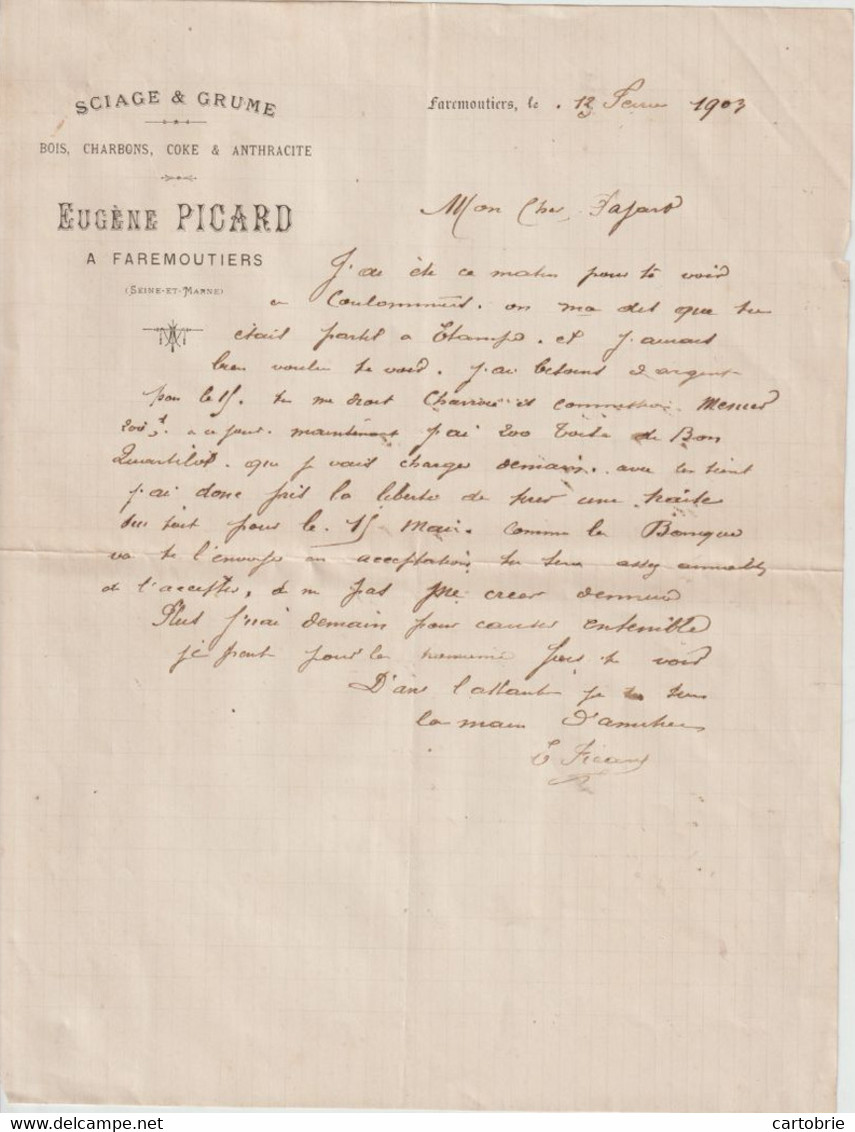 SCIAGE & GRUME
BOIS, CHARBONS, COKE & ANTHRACITE
EUGÈNE PICARD
A FAREMOUTIERS
(SEINE-ET-MARNE)
Faremoutiers, le 1903
Mon Cher Fafart
J'ai été ce matin pour te voir
a Coulommiers. on ma dit que tu
était partit a Etampe. et j'aurait
bien voulu te voir. j'ai besoins d'argent
pour le 15. tu me droit et commission
200 f. a ce jour. maintenant j'ai 200 de Bon
que je vais charger demain. avec les tient
j'ai donc pris la liberté de tirer une traite
sur toit pour le 15 comme la Banque
va te l'envoye en acceptation tu sera assez
de l'accepter, & ne pas me creer
Plus j'irai demain pour causer ensemble
je part pour la te voir
D'ans l'attante je te sers
la main D'amitiers
E Picard
cartobrie